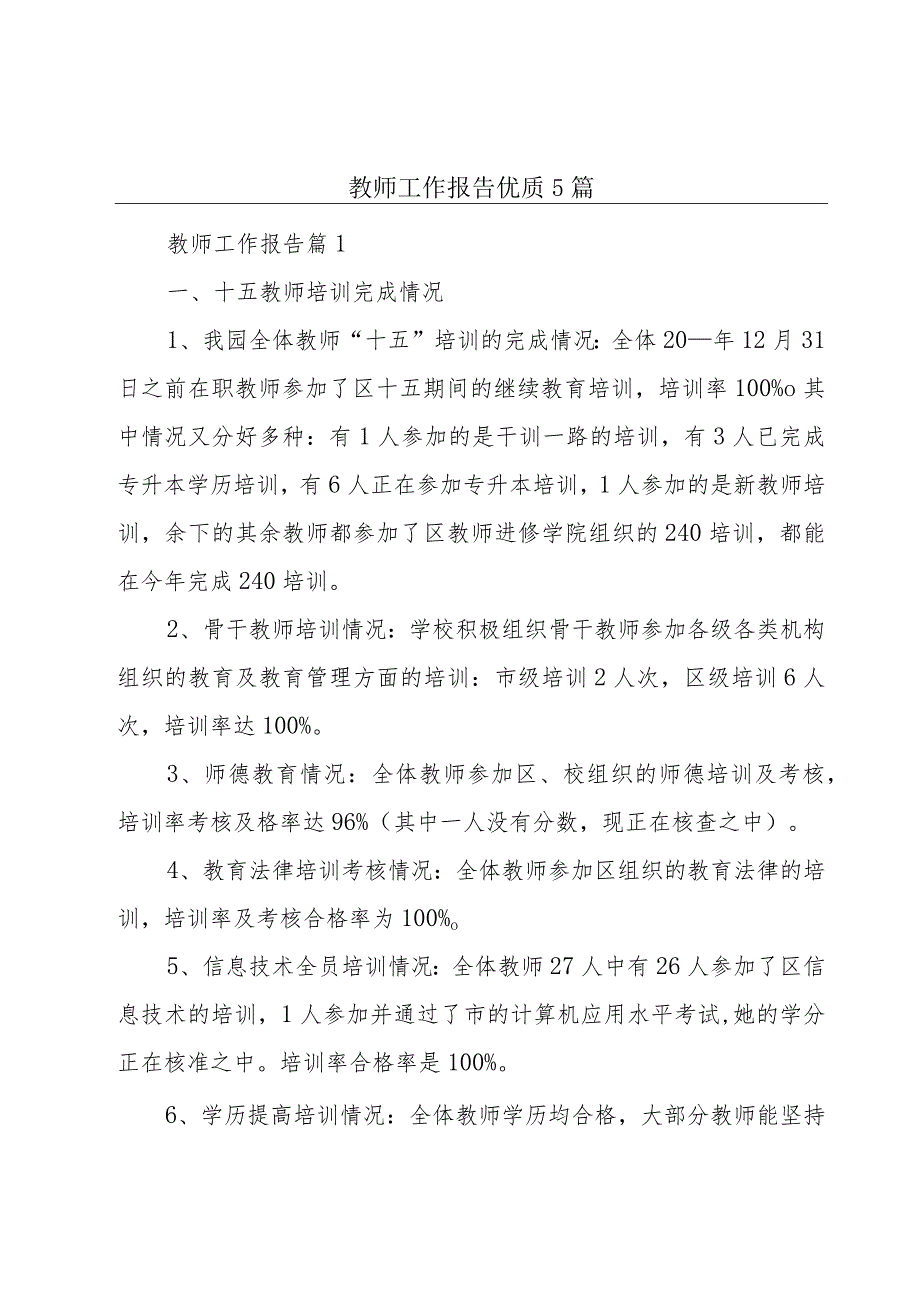 教师工作报告优质 5 篇
教师工作报告篇 1
一、十五教师培训完成情况
1、我园全体教师“十五”培训的完成情况：全体 20—年 12 月 31
日之前在职教师参加了区十五期间的继续教育培训，培训率 100%o 其
中情况又分好多种：有 1 人参加的是干训一路的培训，有 3 人已完成
专升本学历培训，有 6 人正在参加专升本培训，1 人参加的是新教师培
训，余下的其余教师都参加了区教师进修学院组织的 240 培训，都能
在今年完成 240 培训。
2、骨干教师培训情况：学校积极组织骨干教师参加各级各类机构
组织的教育及教育管理方面的培训：市级培训 2 人次，区级培训 6 人
次，培训率达 100%。
3、师德教育情况：全体教师参加区、校组织的师德培训及考核，
培训率考核及格率达 96%（其中一人没有分数，现正在核查之中）。
4、教育法律培训考核情况：全体教师参加区组织的教育法律的培
训，培训率及考核合格率为 100%o
5、信息技术全员培训情况：全体教师 27 人中有 26 人参加了区信
息技术的培训，1 人参加并通过了市的计算机应用水平考试,她的学分
正在核准之中。培训率合格率是 100%。
6、学历提高培训情况：全体教师学历均合格，大部分教师能坚持